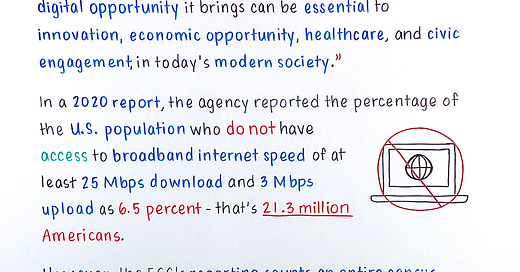 digital opportunity it brings can be essential to
innovation, economic opportunity, healthcare, and civic
engagement, in today's modern society."
In a 2020 report, the agency reported the percentage of
the U.S. population who do not have
access to broadband internet speed of at
least 25 Mbps download and 3 Mbps
upload as 6.5 percent - that's 21.3 million
Americans.
However, the FCC's reporting counts an entire census